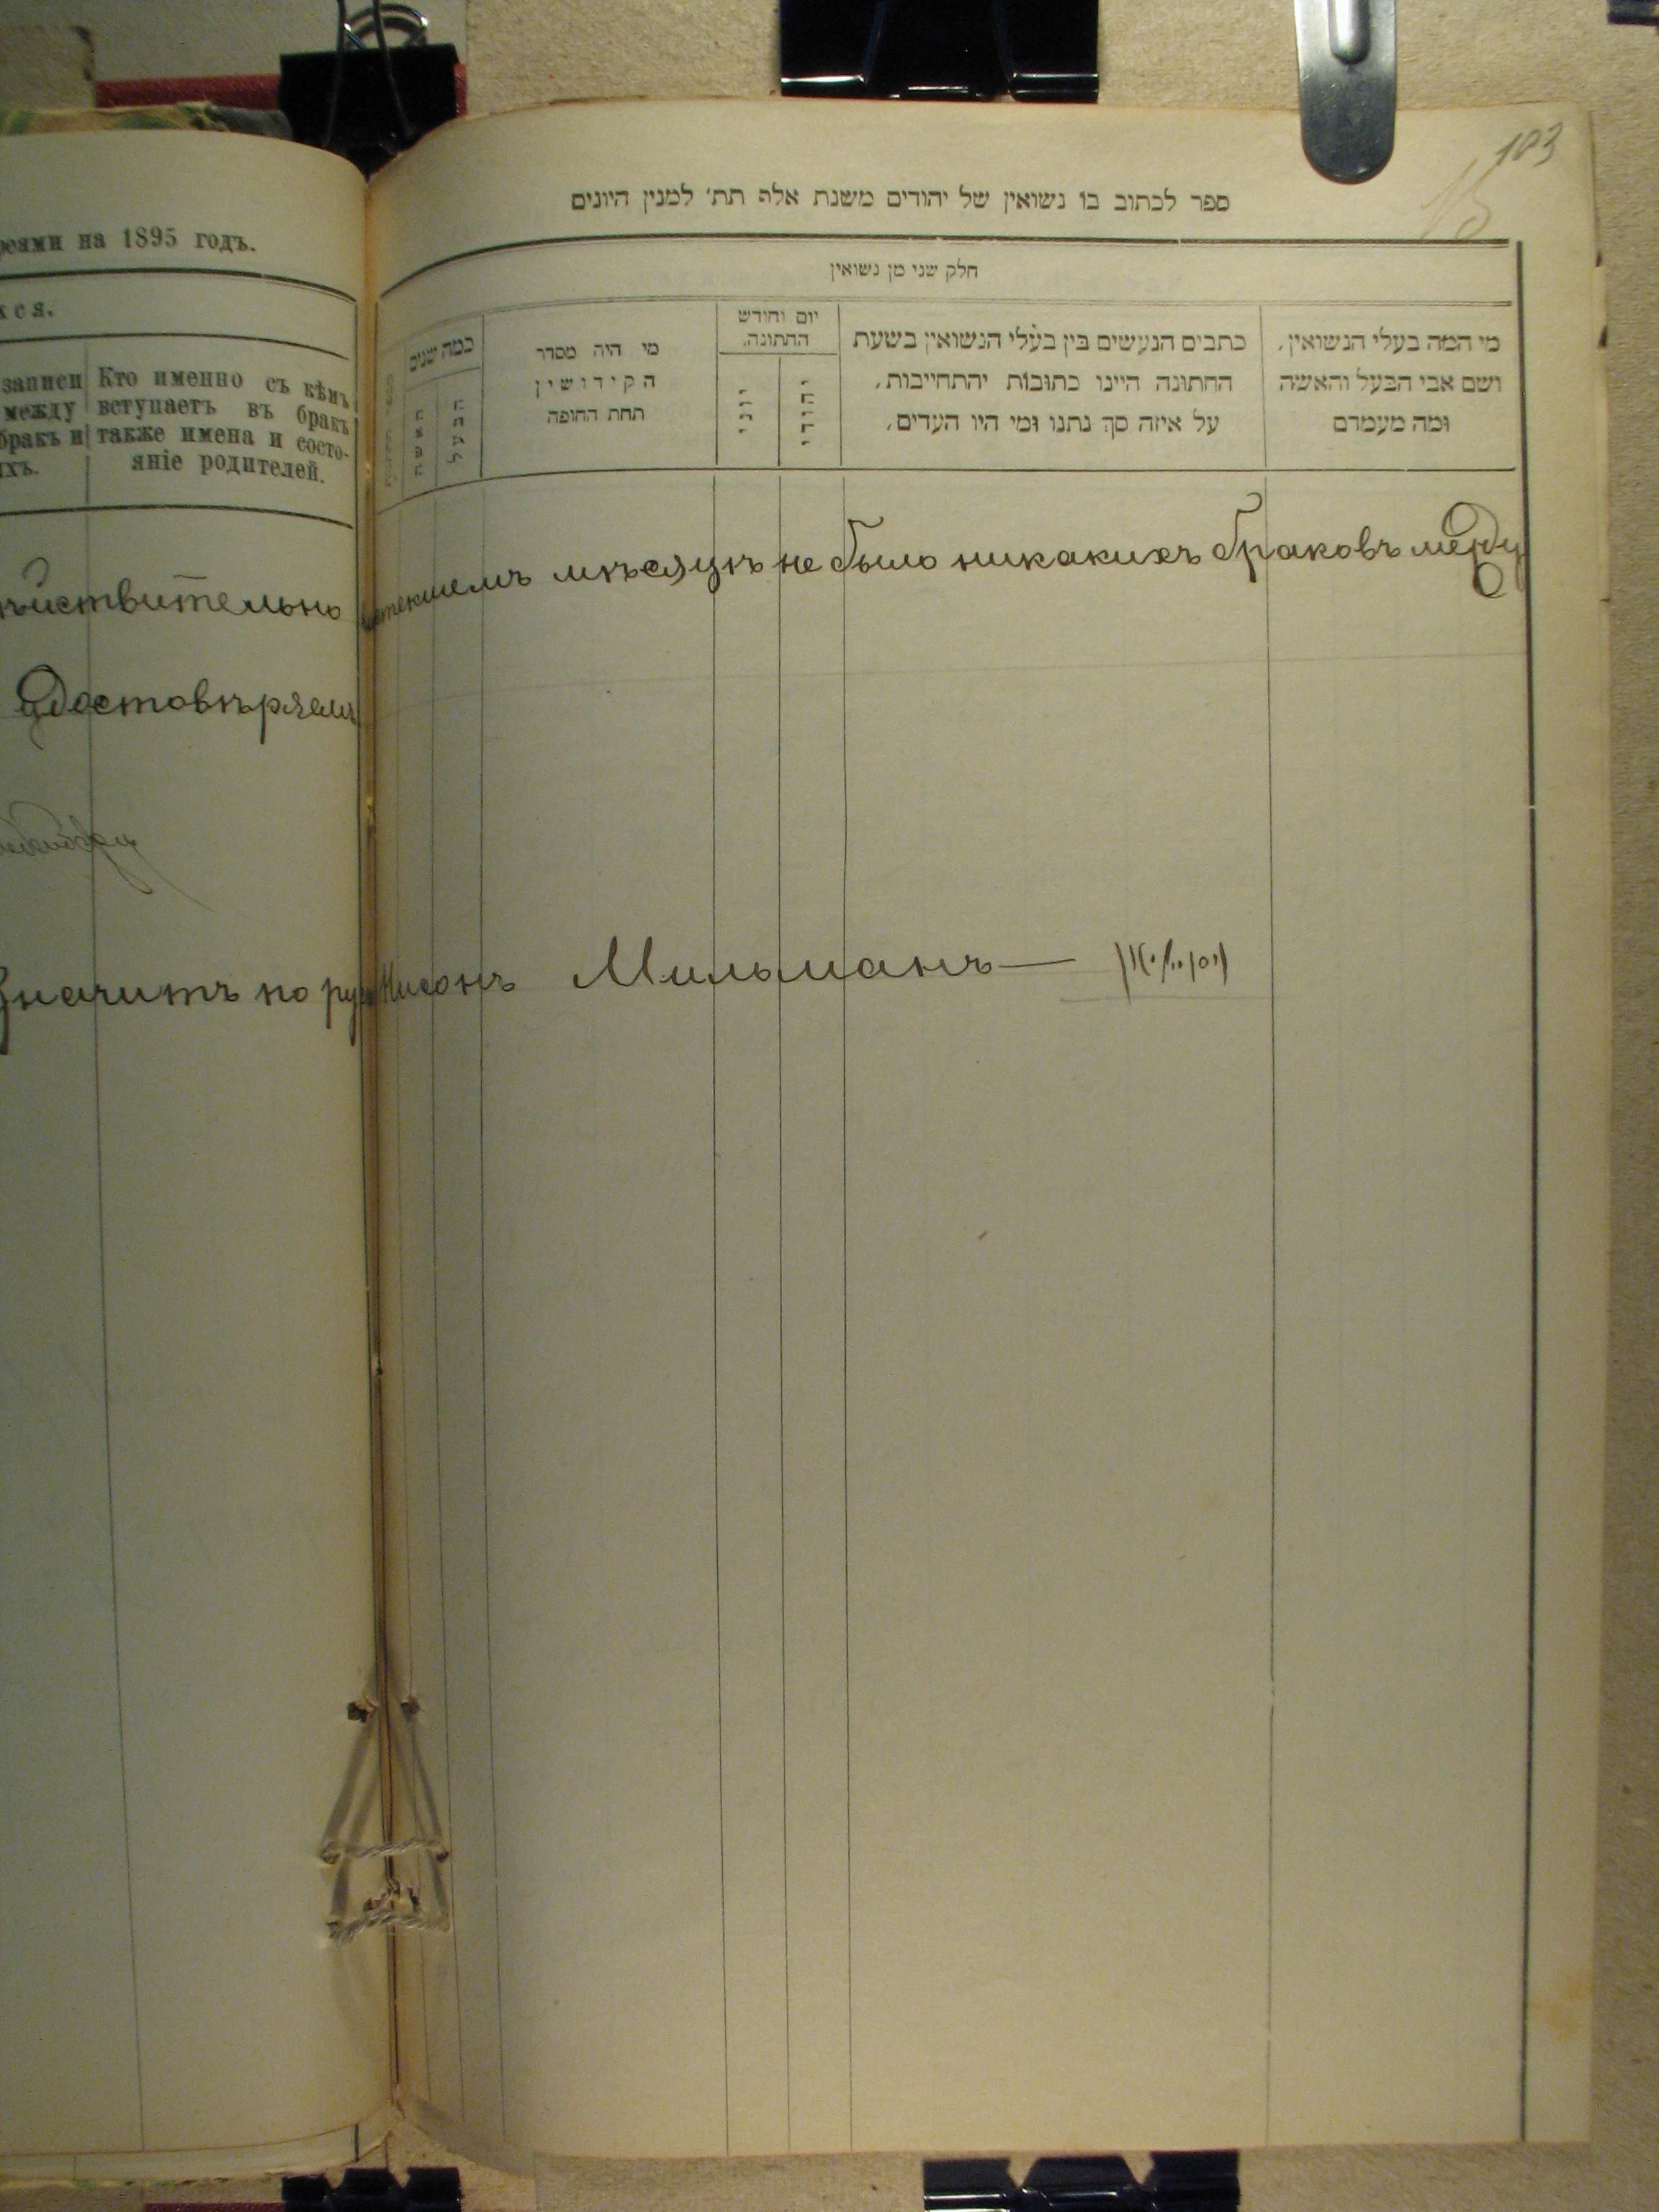 103
15
ספר לכתוב בו נשואין של יהודים משנת אלף תת׳ למנין היונים
реями на 1895 годъ.
хся.
записи
между
бракъ и
ихъ.
Кто именно съ кѣмъ
вступаетъ въ бракъ
также имена и состо-
яніе родителей.
חלק שני מן נשואין
מי המה בעלי הנשואין,
ושם אבי הבעל והאשה
ומה מעמדם
כתבים הנעשים בין בעלי הנשואין בשעת
החתונה היינו כתובות יהתחייבות,
על איזה סך נתנו ומי היו העדים,
יום וחודש
החתונה,
יהודי
יוני
מי היה מסדר
הקידושין
תחת החופה
כמה שנים
הבעל
האשה
йствительно истекшемъ мѣсяцѣ не было никакихъ браковъ между
Удостовѣряемъ
Значитъ по ру Нисонъ Мильманъ —
ניסן מילמאן